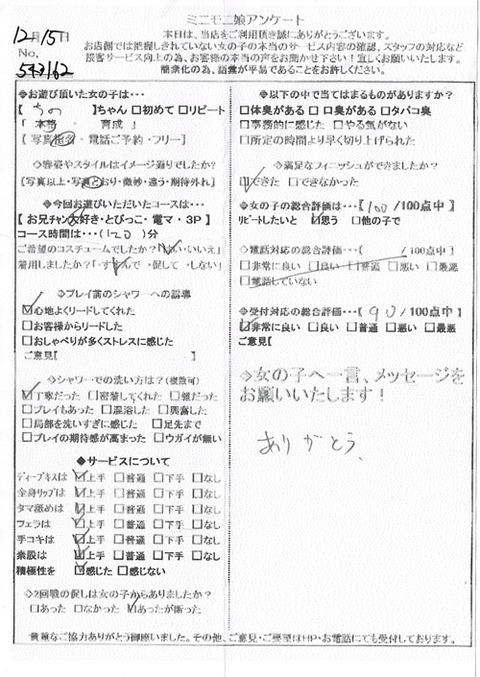 ミニモニ娘アンケート
12月15日
No.
543162
本日は、当店をご利用頂き誠にありがとうございます。
お店側では把握しきれていない女の子の本当のサービス内容の確認、スタッフの対応など
接客サービス向上の為、お客様の本当の声をお聞かせ下さい！宜しくお願いいたします。
簡素化の為、語彙が平易であることをお許しください。
◆お遊び頂いた女の子は…
【 ちの 】ちゃん □初めて □リピート
「 本格 ・ 育成 」
[写真指名・電話ご予約・フリー]
◇容姿やスタイルはイメージ通りでしたか?
[写真以上・写真どおり・微妙・違う・期待外れ]
◆今回お遊びいただいたコースは…
【お兄チャン大好き・とびっこ・電マ・3P】
コース時間は…(120)分
ご希望のコスチュームでしたか?「はい・いいえ」
着用しましたか?「すすんで・促して・しない」
◇プレイ前のシャワーへの誘導
□心地よくリードしてくれた
□お客様からリードした
□おしゃべりが多くストレスに感じた
ご意見【 】
◇シャワーでの洗い方は?(複数可)
□丁寧だった □密着してくれた □雑だった
□プレイもあった □混浴した □興奮した
□局部を洗いすぎに感じた □足先まで
□プレイの期待感が高まった □ウガイが無い
◆サービスについて
ディープキスは □上手 □普通 □下手 □なし
全身リップは □上手 □普通 □下手 □なし
タマ舐めは □上手 □普通 □下手 □なし
フェラは □上手 □普通 □下手 □なし
手コキは □上手 □普通 □下手 □なし
素股は □上手 □普通 □下手 □なし
積極性を □感じた □感じない
◇2回戦の促しは女の子からありましたか？
□あった □なかった □あったが断った
◆以下の中で当てはまるものがありますか?
□体臭がある □口臭がある □タバコ臭
□事務的に感じた □やる気がない
□所定の時間より早く切り上げられた
◇満足なフィニッシュができましたか?
□できた □できなかった
◆女の子の総合評価は…【100/100点中】
リピートしたいと □思う □他の子で
◇電話対応の総合評価…【 /100点中】
□非常に良い □良い □普通 □悪い □最悪
□電話していない
◆受付対応の総合評価…【90/100点中】
□非常に良い □良い □普通 □悪い □最悪
ご意見【
◇女の子へ一言、メッセージを
お願いいたします！
ありがとう、
貴重なご協力ありがとう御座いました。その他、ご意見・ご要望はHP・お電話にても受付しております。